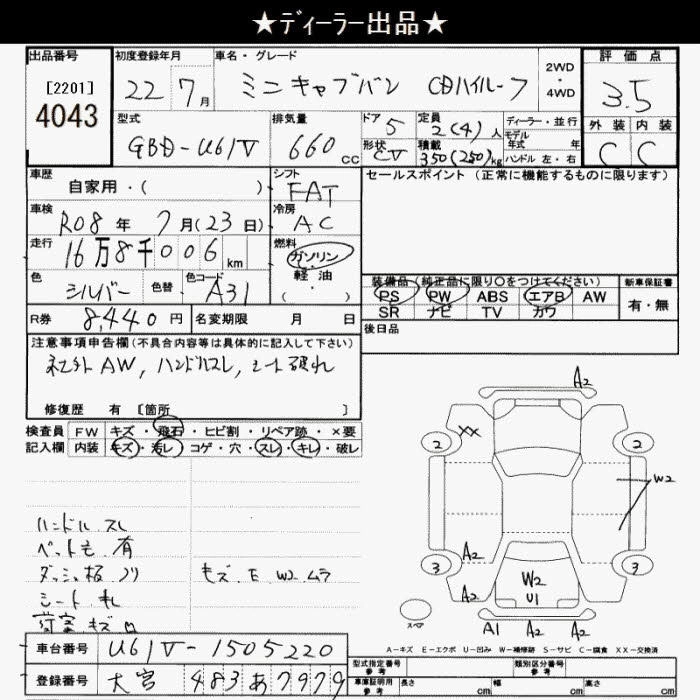 ★ディーラー出品★
出品番号 初度登録年月 車名・グレード 2WD・4WD 評価点
[2201] 4043 22 7月 ミニキャブバン CDハイルーフ 3.5
型式 排気量 ドア 定員 ディーラー・並行 外装 内装
GBD-U61V 660cc 5 2(4)人 モデル年式 年 C C
形状 CV 積載 350(250)kg ハンドル 左・右
車歴 シフト セールスポイント (正常に機能するものに限ります)
自家用・( ) FAT
車検 冷房
R08年 7月(23日) AC
走行 燃料
16万8千006km ガソリン
軽油
( )
色 色替 色コード
シルバー A31
装備品(純正品に限り○をつけてください) 新車保証書
PS PW ABS エアB AW 有・無
SR ナビ TV カワ
R券 8,440円 名変期限 月 日 後日品
注意事項申告欄(不具合内容等は具体的に記入して下さい)
社外AW, ハンドルスレ, シート破れ
修復歴 有 [箇所 ]
検査員 FW キズ・飛石・ヒビ割・リペア跡・×要
記入欄 内装 キズ・汚レ・コゲ・穴・スレ・キレ・破レ
ハンドル スレ
ペット毛 有
ダッシュ板 ノリ
キズ E W2 ムラ
シート キレ
荷室 キズ
A2
XX
2 2
W2
A2
3 3
W2
U1
A2
スペア
A1 A2 A2
A-キズ E-エクボ U-凹み W-補修跡 S-サビ C-腐食 XX-交換済
車台番号 U61V-1505220
登録番号 大宮 483 あ 7979
型式指定番号 参考 類別区分番号 参考
車庫証明用 参考 長さ cm 幅 cm 高さ cm